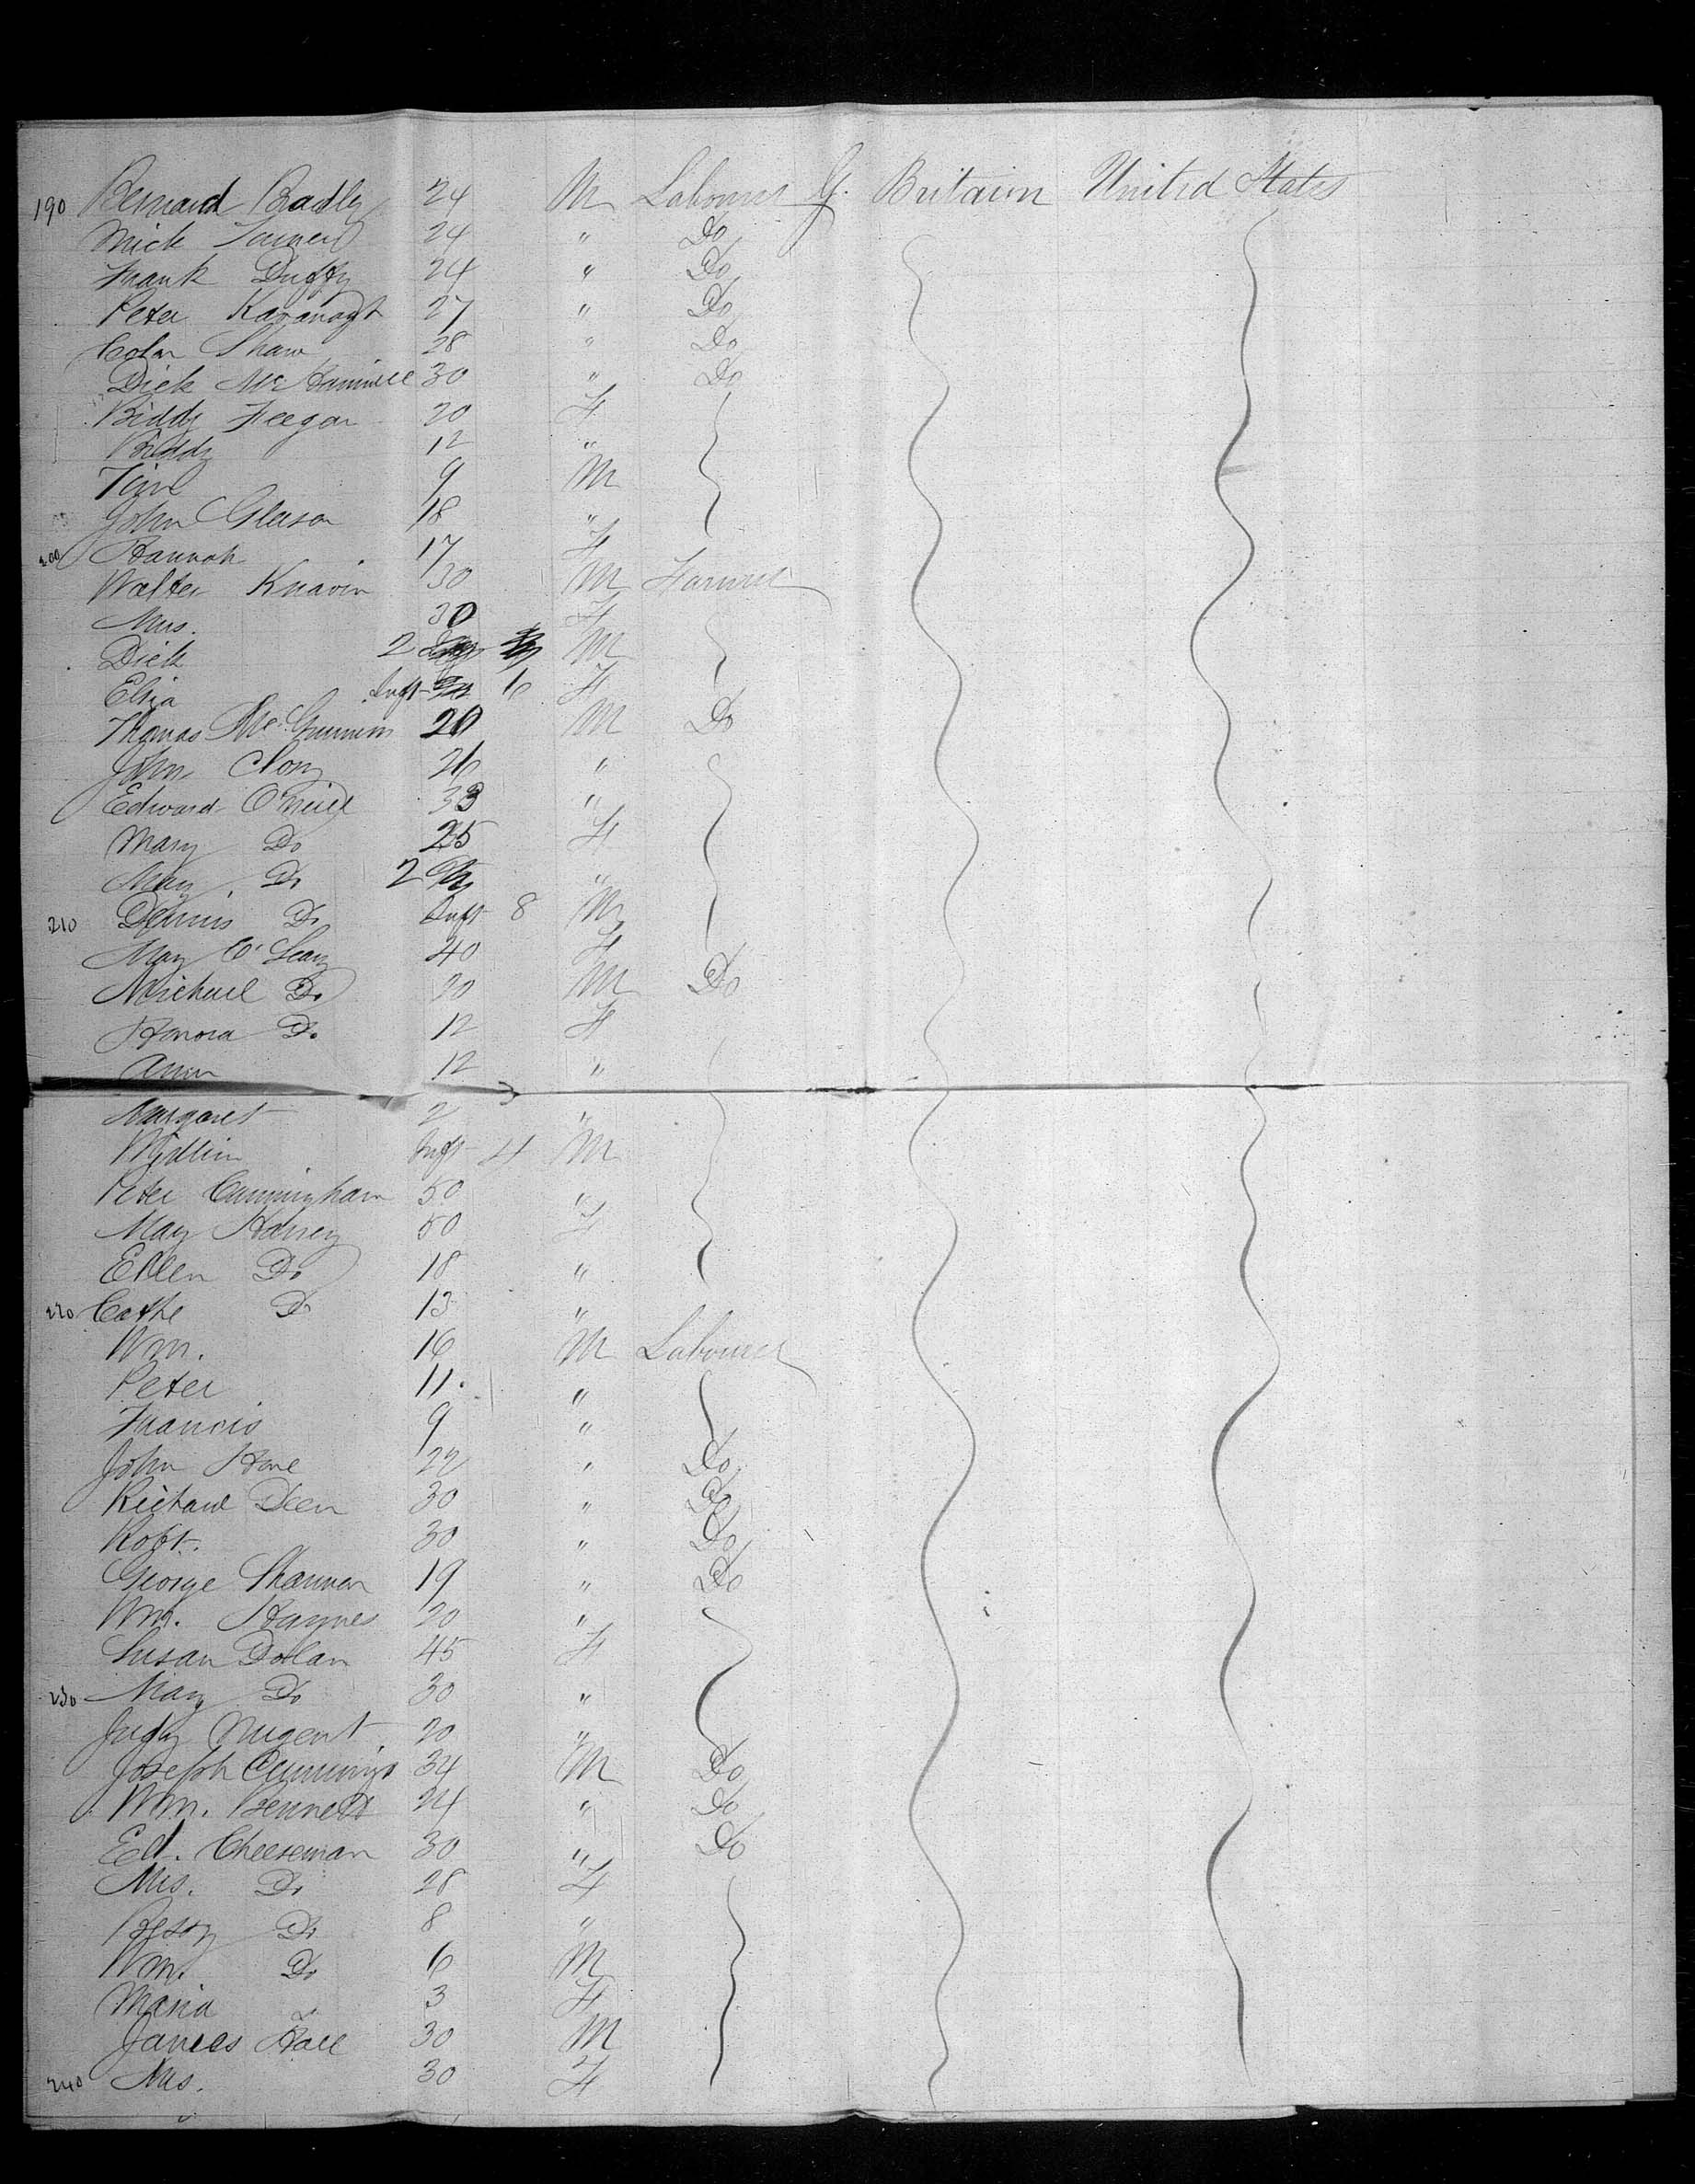 190 Bernard Bradly 24 M Labourer G. Britain United States
Mick 24 " Do
Frank Duffy 24 " Do
Peter Kavanagh 27 " Do
Shaw 28 " Do
Dick Mc 30 " Do
Biddy Feegan 20 F
Biddy 12 "
Tim 9 M
John Gleason 18 "
200 Hannah 17 F
Walter 30 M Farmer
Mrs. 30 F
Dick 2 M
Eliza Inft 6 F
Thomas 20 M Do
John 26 "
Edward O'Neill 33 "
Mary Do 25 F
Mary Do 2 "
210 Dennis Do Inft 8 M
Mary O'Leary 40 F
Michael Do 20 M Do
Honora Do 12 F
Ann 12 "
Margaret 2 "
Inft 4 M
Peter Cunningham 50 "
Mary 50 F
Ellen Do 18 "
220 Cathe Do 13 "
Wm. 16 M Labourer
Peter 11 "
Francis 9 "
John 22 " Do
Richard Deen 30 " Do
Robt. 30 " Do
George Shannon 19 " Do
Wm. Haynes 20 "
Susan Dolan 45 F
230 Mary Do 30 "
Judy Nugent 20 "
Joseph Cummings 34 M Do
Wm. Bennett 24 " Do
Ed. Cheeseman 30 " Do
Mrs. Do 28 F
Betsy Do 8 "
Wm. Do 6 M
Maria 3 F
James Hall 30 M
240 Mrs. 30 F